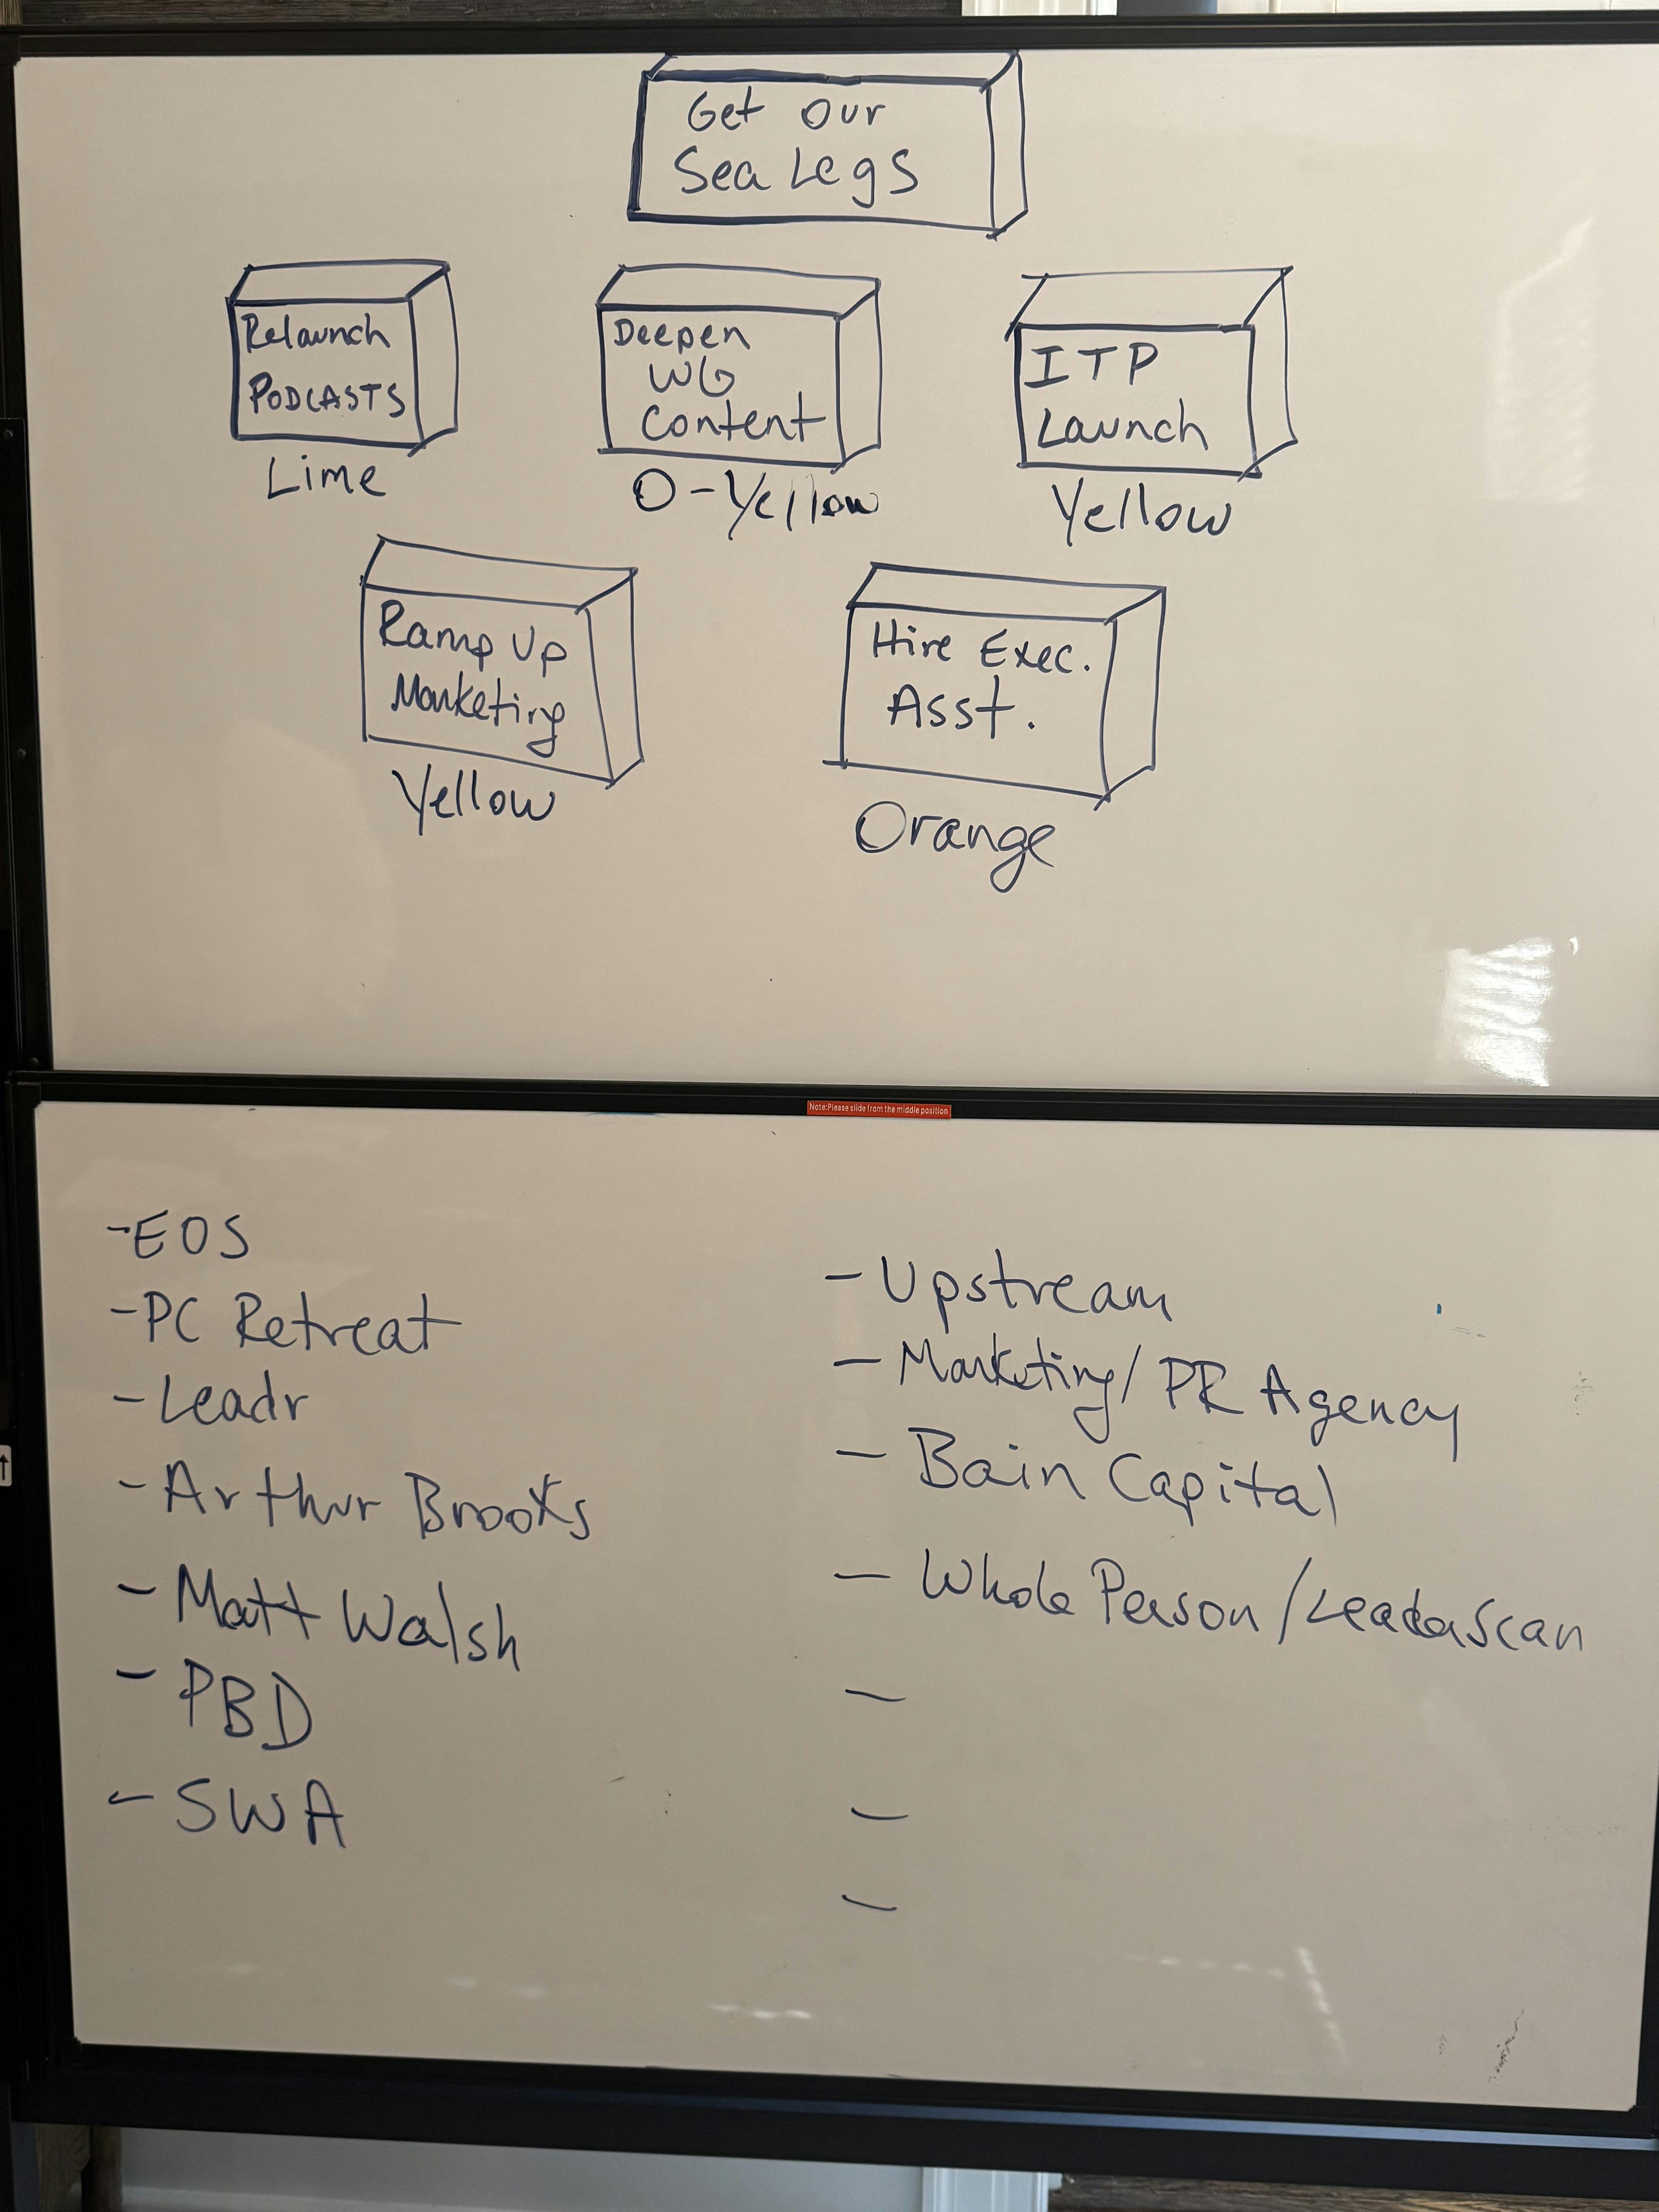 Get Our
Sea Legs
Relaunch
PODCASTS
Lime
Deepen
WG
Content
O-Yellow
ITP
Launch
Yellow
Ramp Up
Marketing
Yellow
Hire Exec.
Asst.
Orange
Note:Please slide from the middle position
- EOS
- PC Retreat
- Leadr
- Arthur Brooks
- Matt Walsh
- PBD
- SWA
- Upstream
- Marketing/PR Agency
- Bain Capital
- Whole Person/LeaderScan
-
-
-